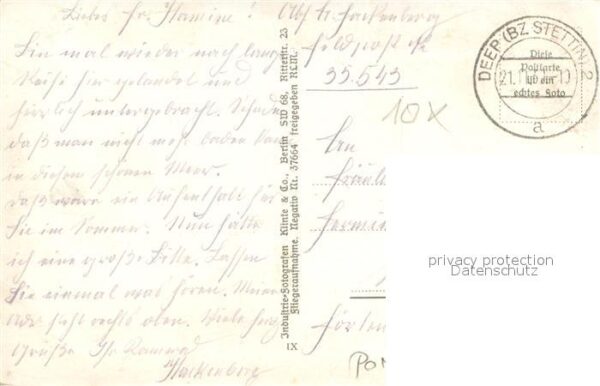 Liebes Frl. Hamine! Abs. Fr. Hackenberg
Sind mal wieder nach langer
Feldpost Nr.
Reise hier gelandet und
33.543
herrlich untergebracht. Schade
daß man nicht mehr baden kann
in diesem schönen Meer.
Das wäre ein Aufenthalt für
Sie im Sommer. Nun hätte
ich eine große Bitte. Lassen
Sie einmal was hören. Meine
Adr. steht rechts oben. Viele herzl.
Grüße Ihr Kamerad
Hackenberg
Industrie-Fotografen Klinke & Co., Berlin SW 68, Ritterstr. 23
Fliegeraufnahme. Negativ Nr. 37664 freigegeben RLM.
IX
DEEP (BZ STETTIN) 2
21.
a
Diese
Postkarte
ist ein
echtes Foto
10X
An
Fräulein
POM
privacy protection
Datenschutz